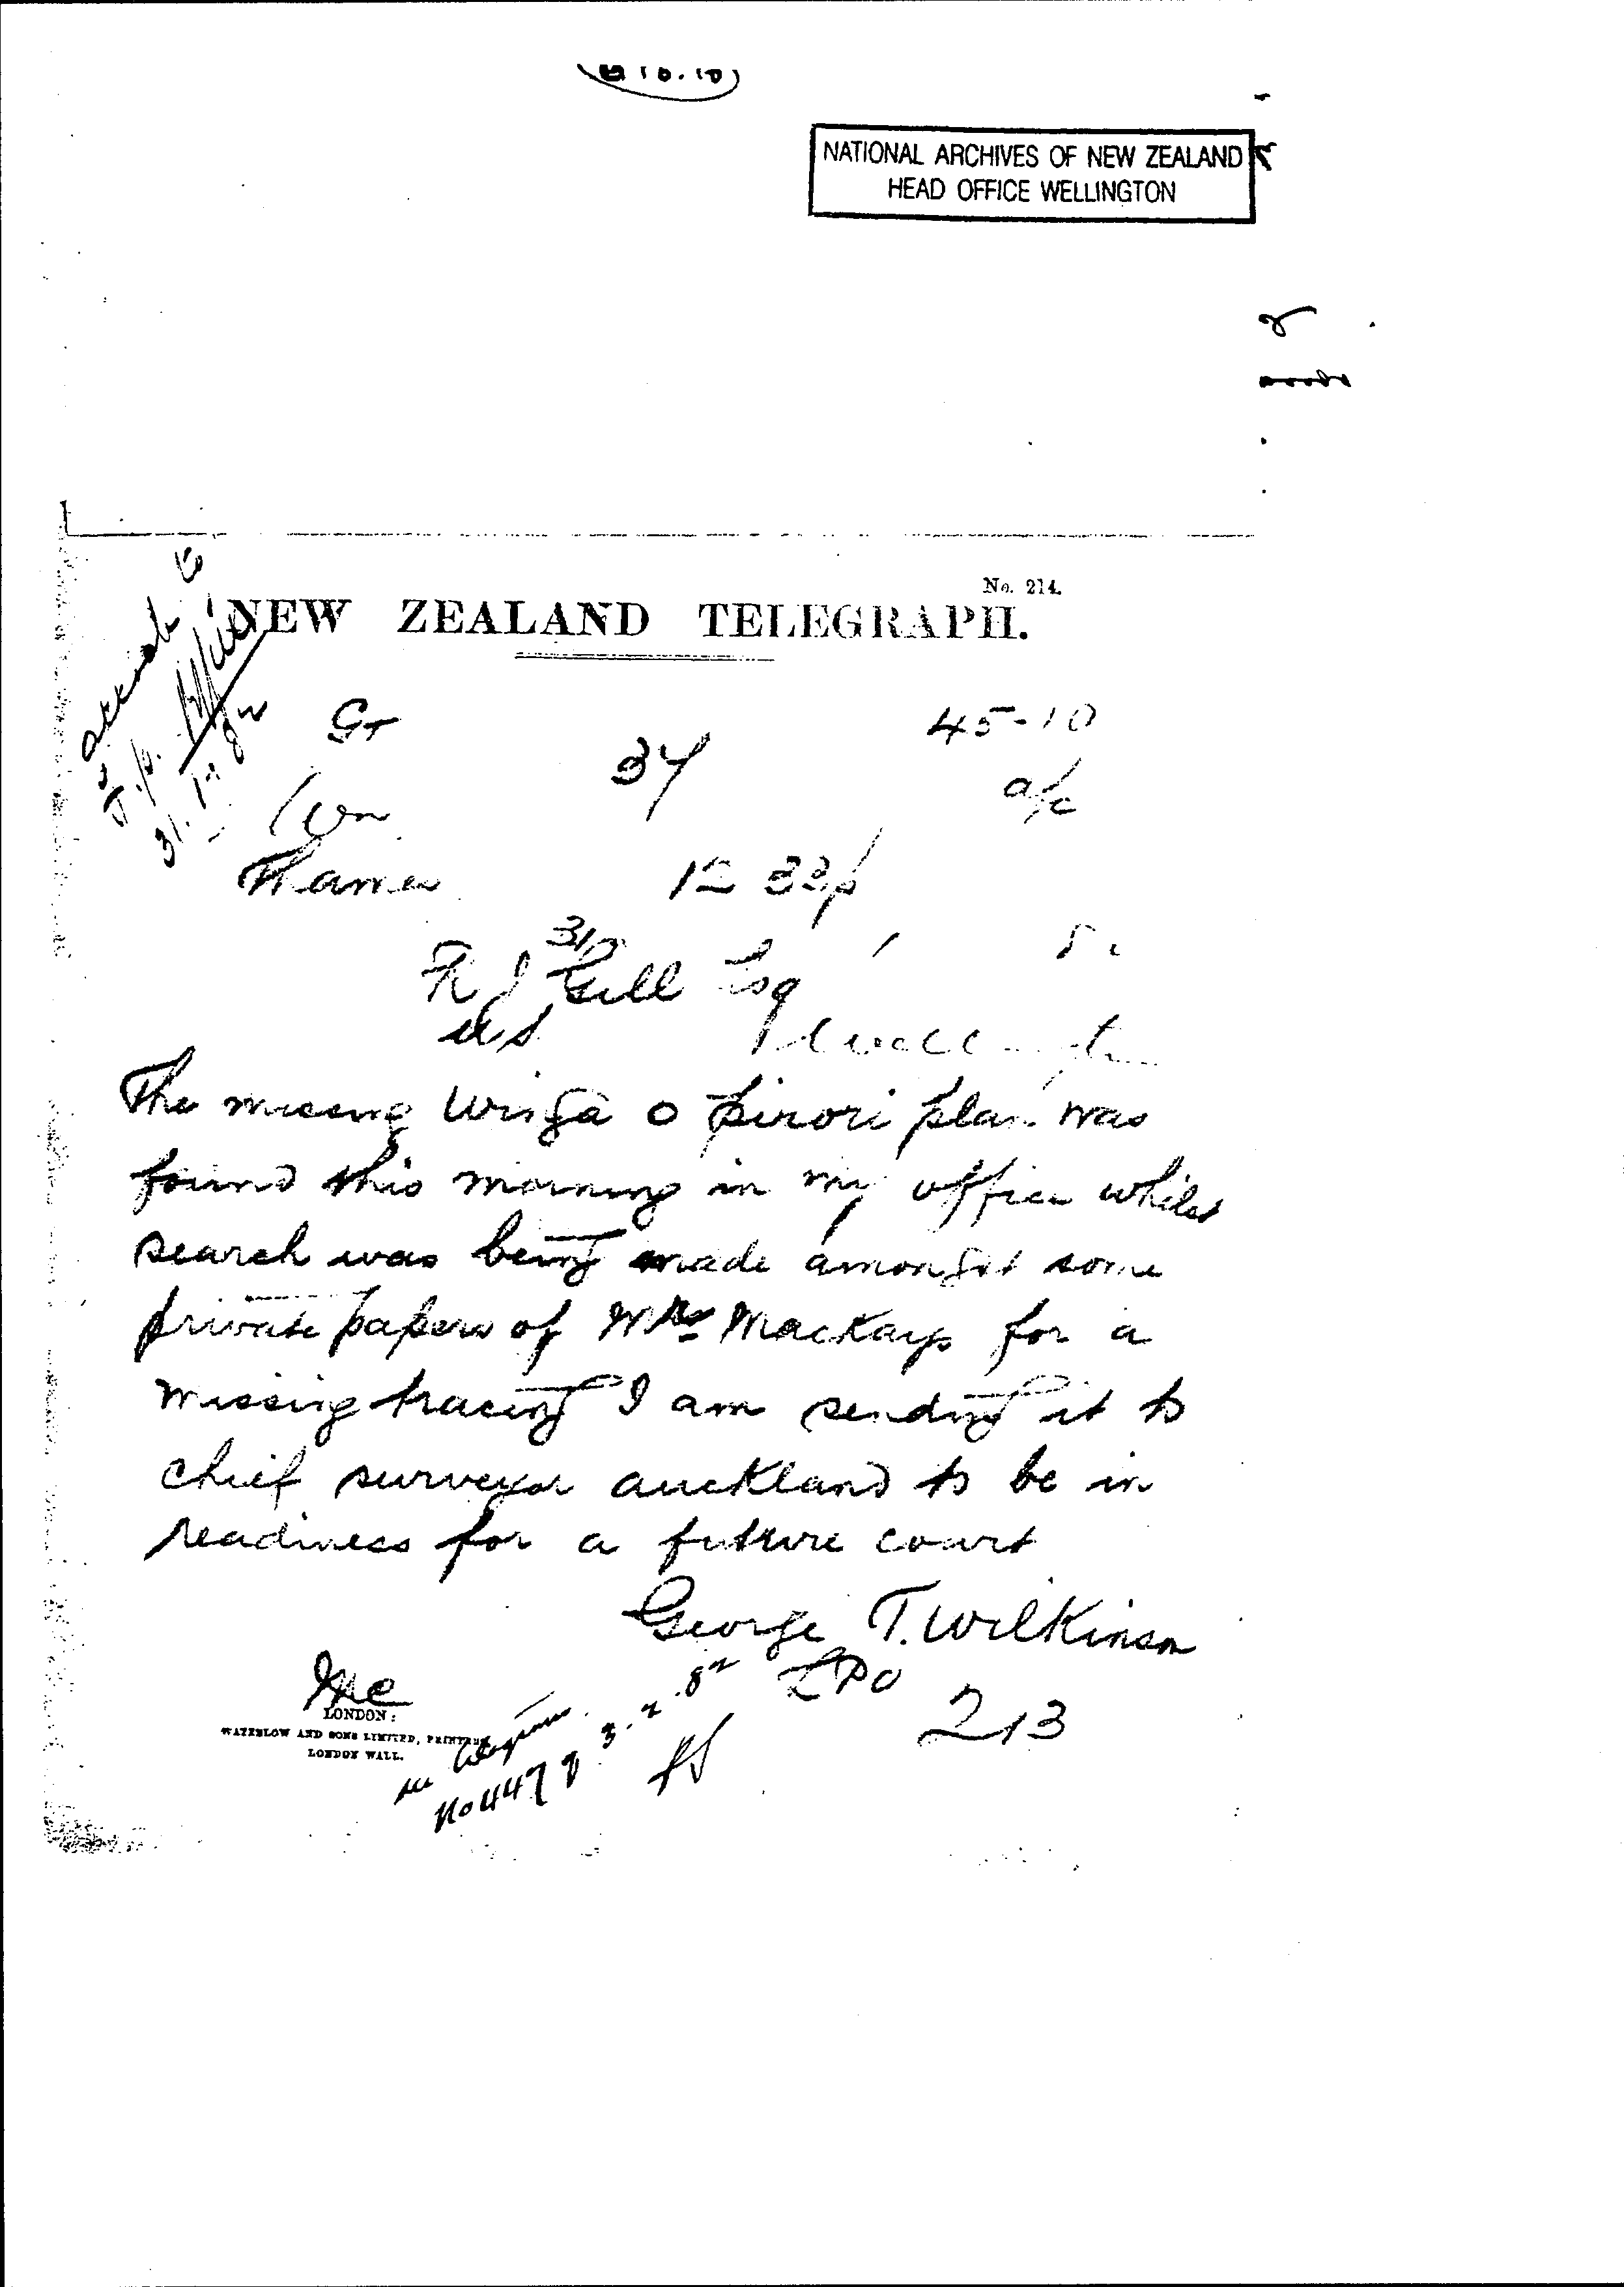 NATIONAL ARCHIVES OF NEW ZEALAND
HEAD OFFICE WELLINGTON
No. 214.
NEW ZEALAND TELEGRAPH.
attach to
31.1.82
GT
45-10
34
a/c
Wn
Thames
12 33p
31/1
R J Gill Esq
Wellington
The missing Winga o pirori plan was
found this morning in my office whilst
search was being made amongst some
private papers of Mrs Mackays for a
missing tracing I am sending it to
chief surveyor auckland to be in
readiness for a future court
George T. Wilkinson
LPO
213
LONDON:
WATERLOW AND SONS LIMITED, PRINTERS,
LONDON WALL.
No 447 3.2.82